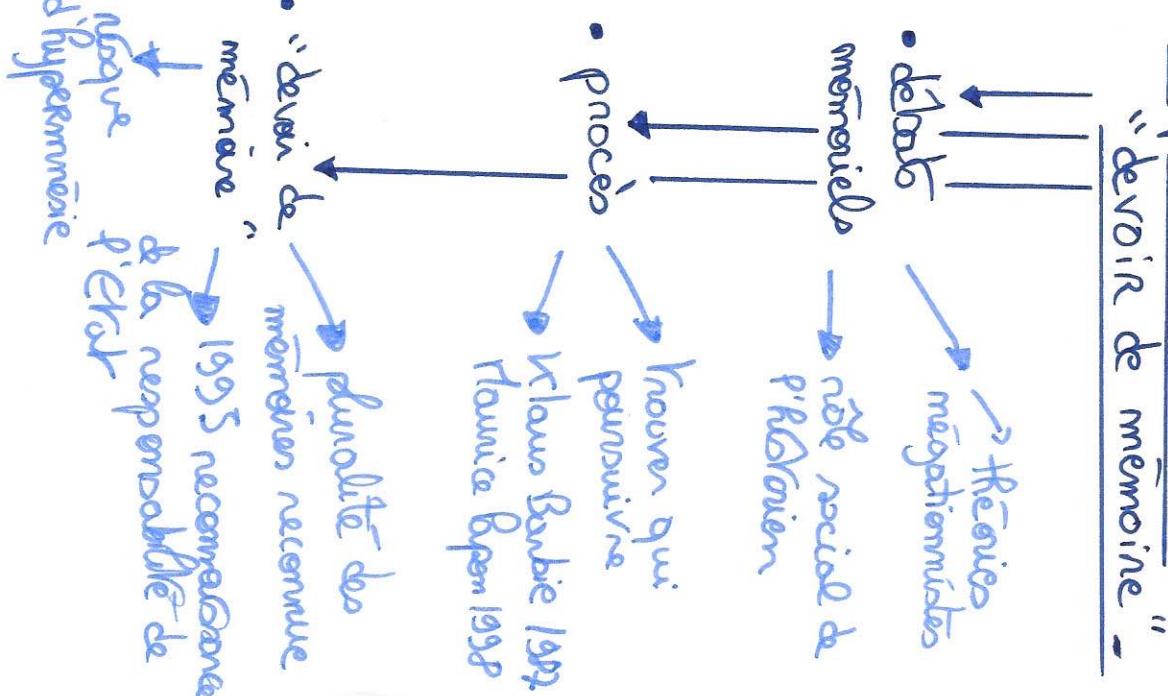 "devoir de mémoire" -
• débats
mémoriels
→ théories
négationnistes
rôle social de
l'historien
• procès
trouver qui
poursuivre
Klaus Barbie 1987
Maurice Papon 1998
• "devoir de
mémoire"
pluralité des
mémoires reconnue
1995 reconnaissance
de la responsabilité de
l'Etat
risque
d'hypermnésie